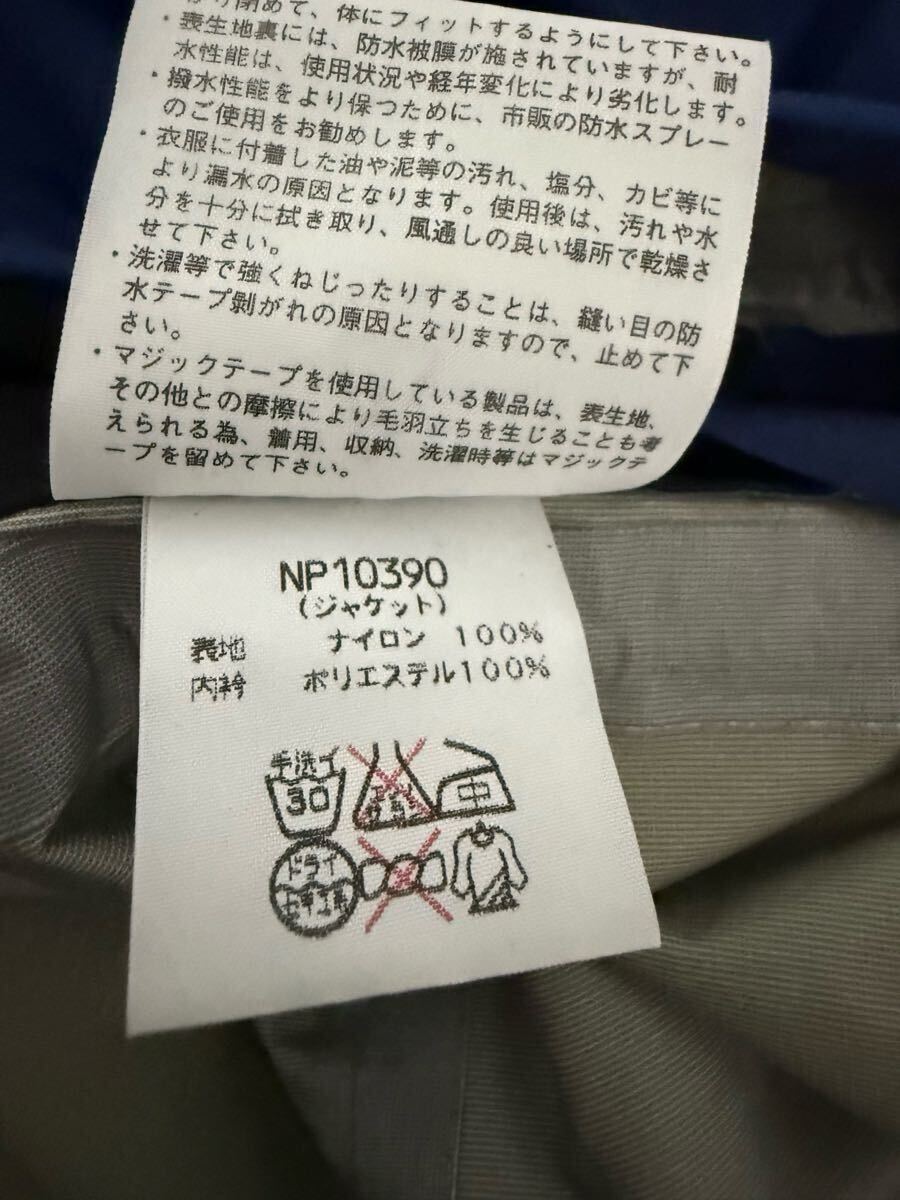 閉めて、体にフィットするようにして下さい。
・表生地裏には、防水被膜が施されていますが、耐
水性能は、使用状況や経年変化により劣化します。
・撥水性能をより保つために、市販の防水スプレー
のご使用をお勧めします。
・衣服に付着した油や泥等の汚れ、塩分、カビ等に
より漏水の原因となります。使用後は、汚れや水
分を十分に拭き取り、風通しの良い場所で乾燥さ
せて下さい。
・洗濯等で強くねじったりすることは、縫い目の防
水テープ剝がれの原因となりますので、止めて下
さい。
・マジックテープを使用している製品は、表生地、
その他との摩擦により毛羽立ちを生じることも考
えられる為、着用、収納、洗濯時等はマジックテ
ープを留めて下さい。
NP10390
(ジャケット)
表地 ナイロン 100%
内衿 ポリエステル100%
手洗イ
30
中
ドライ